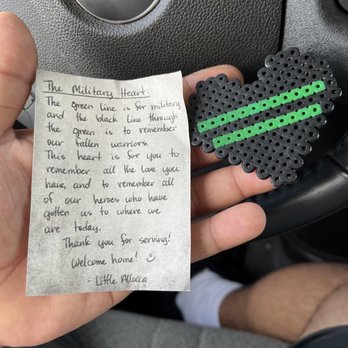 The Military Heart
The green line is for military
and the black line through
the green is to remember
our fallen warriors.
This heart is for you to
remember all the love you
have, and to remember all
of our heroes who have
gotten us to where we
are today.
Thank you for serving!
Welcome home! :)
- Little